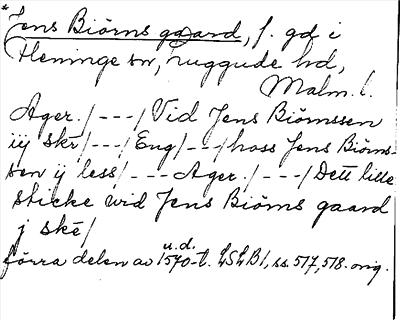 *Jens Biörns gaard, f. gd i
Fleninge sn, Luggude hd,
Malm. l.
Ager./---/Vid Jens Biörnssen
iij skr/---/Eng/---/hoss Jens Biörns-
sen ij less/---Ager./---/Dett lille
sticke wid Jens Biörns gaard
j skē/
förra delen av 1570-t. LSLB1, ss. 517, 518. orig.
u.d.